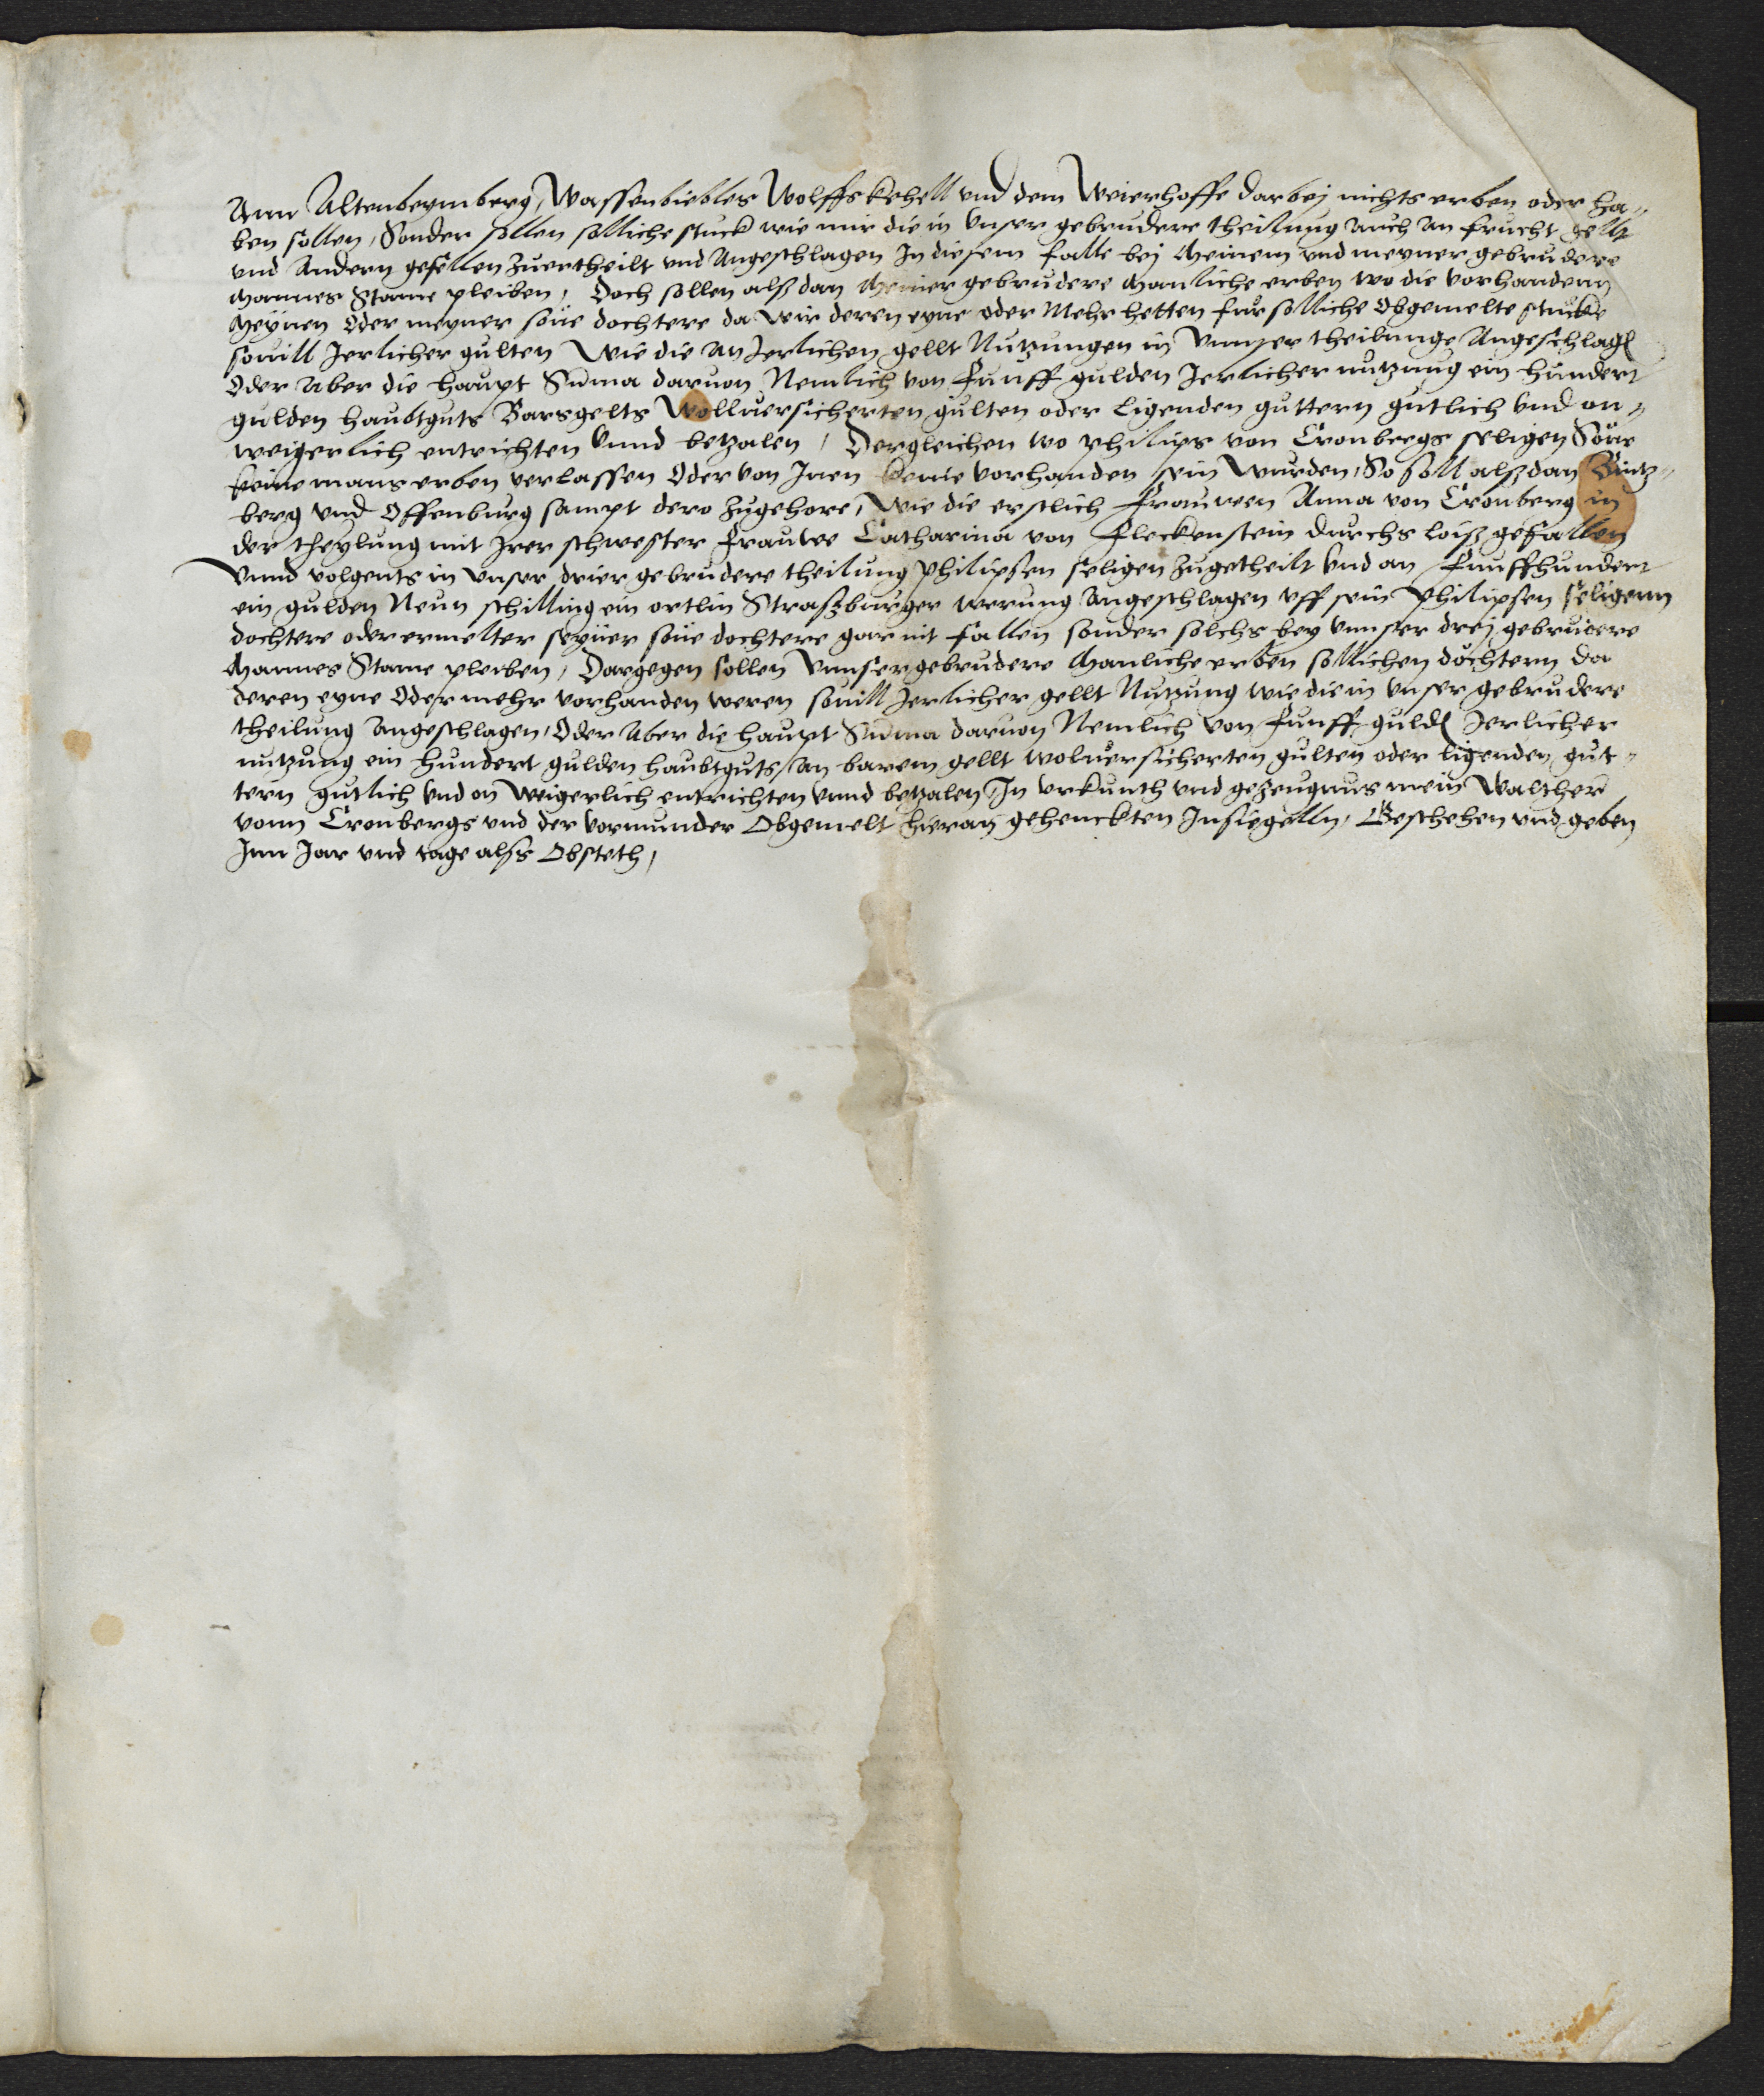 Ann Altenbeymberg, Wassenbiebles Wolffskehell vnd dem Weierhoffe darbej nichts erben oder ha„
ben sollen, Sonder sollen solliche stuck wie mir die in vnser gebrudere theilung auch an frucht gellt
vnd Andern gefellen zuertheilt vnd Angeschlagen In diesem falle bej Meinem vnd meyner gebrudere
Mannes Stame pleiben, Doch sollen alß dan Meiner gebrudere Manliche erben wo die vorhandenn
Meynen Oder meyner söne dochtere da wir deren eyne oder Mehr hetten fur solliche Obgemelte stucke
souill Jerlicher gulten Wie die an Jerlichen gellt Nutzungen in Vnnser theilunge Angeschlagen
Oder Aber die haupt Suma daruon Nemlich von Funff gulden Jerlicher nutzung ein hundert
gulden haubtguts Barsgelts Wolluersicherten gulten oder ligenden guttern gutlich vnd on„
weigerlich entrichten vnnd betzalen, Dergleichen wo philips von Cronbergs seligen Söne
keine mans erben verlassen Oder von Jnen keine vorhanden sein wurden, So soll alßdan Bintz„
berg vnd Offenburg sampt dero zugehore, Wie die erstlich Frauwen Anna von Cronberg in
der theylung mit Jrer schwester Frauwe Catharina von Fleckenstein durchs loiß gefallen
Vnnd volgents in vnser drier gebrudere theilung philipsen seligen zugetheilt vnd an Funffhundert
ein gulden Neun schilling ein ortlin Straßburger werung angeschlagen vff sein Philipsen seligenn
dochtere oder ermelter seyner söne dochtere gar nit fallen sonder solchs bey vnnser drej gebrudere
Mannes Stame pleiben, Dargegen sollen Vnnser gebrudere Manliche erben sollichen dochtern da
deren eyne Oder mehr vorhanden weren souill Jerlicher gellt Nutzung wie die in vnser gebrudere
theilung angeschlagen, Oder Aber die haupt Suma daruon Nemlich von Funff gulden Jerlicher
nutzung ein hundert gulden haubtguts, an barem gellt woluersicherten gulten oder ligenden gut„
tern gutlich vnd on weigerlich entrichten vnnd betzalen, In vrkunth vnd gezeugnus mein Walther
vonn Cronbergs vnd der vormunder Obgemelt hieran gehenckten Insiegelln, Geschehen vnd geben
Jnn Jar vnd tage alss Obsteth,